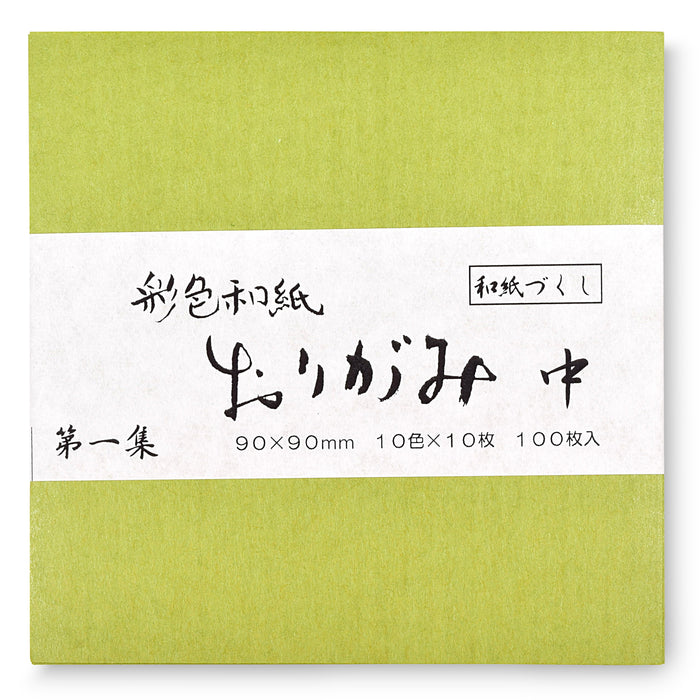 彩色和紙
和紙づくし
おりがみ 中
第一集
90×90mm 10色×10枚 100枚入